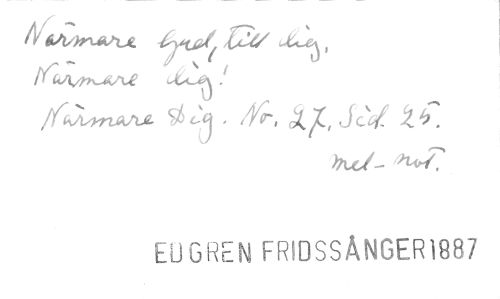 Närmare Gud, till dig,
Närmare dig!
Närmare Dig. No. 27. Sid. 25.
mel-not.
EUGREN FRIDSSÅNGER 1887